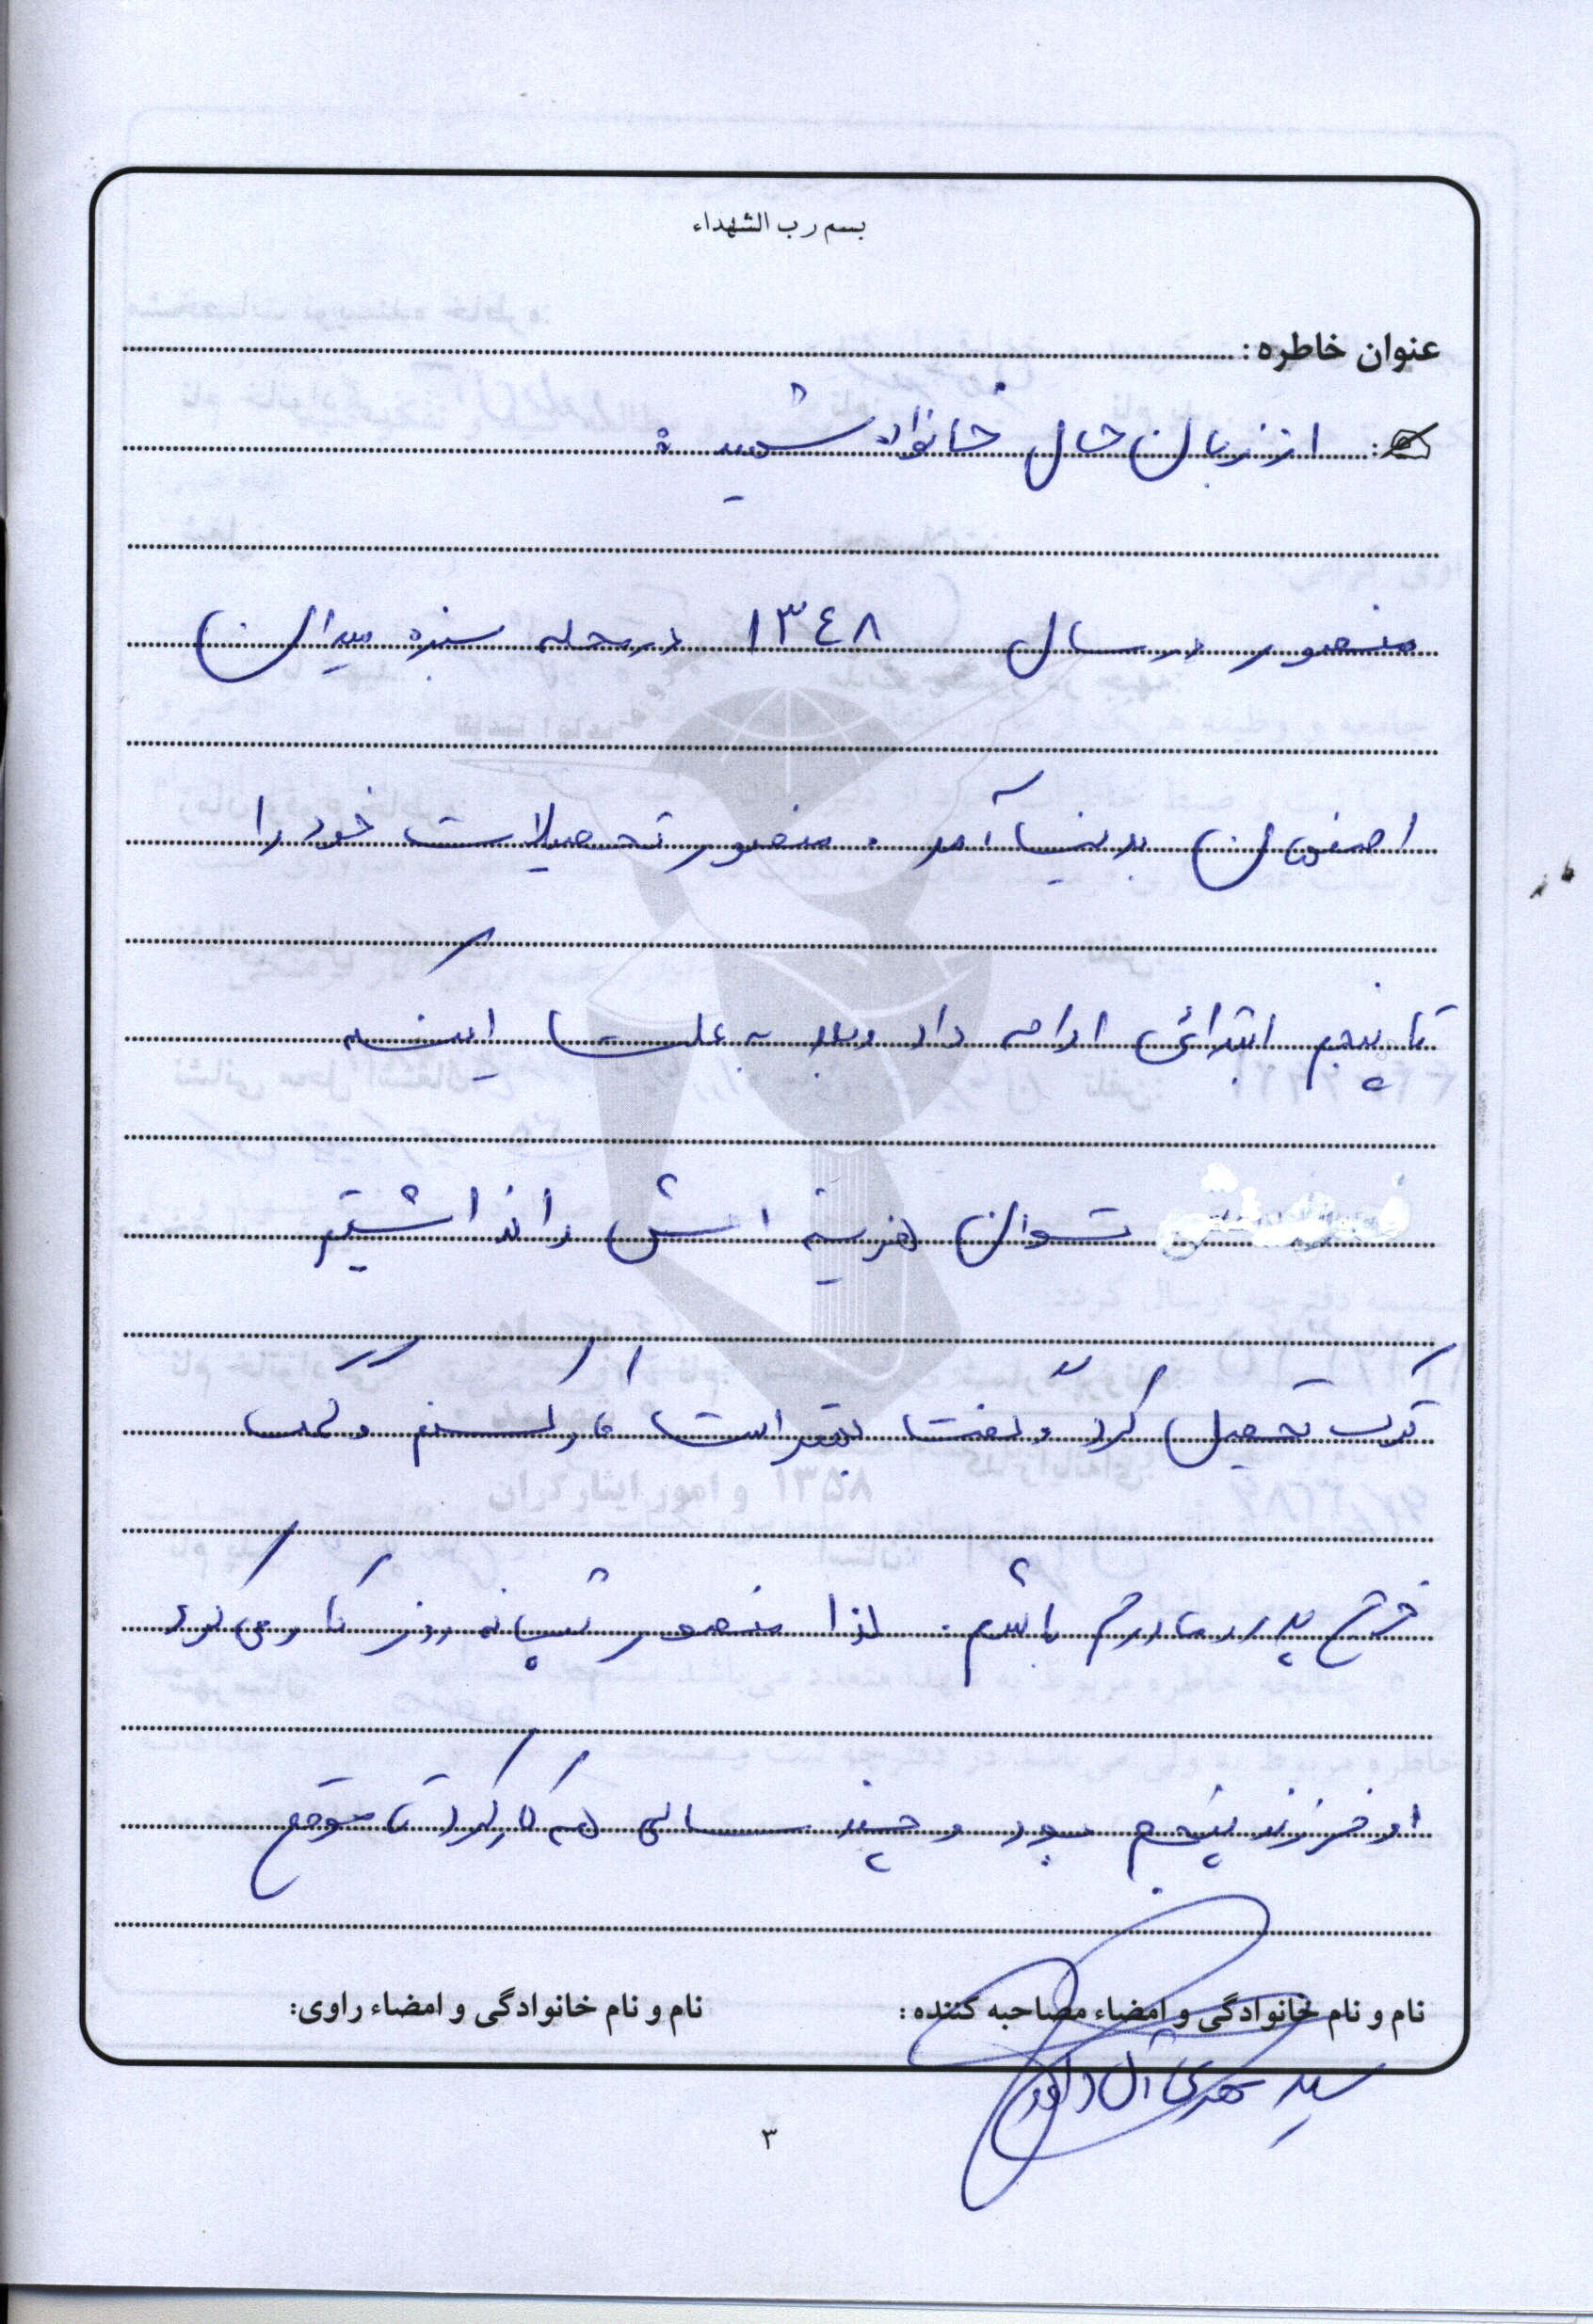 بسم رب الشهداء
عنوان خاطره:
از زبان حال خانواده شهید:
منصور در سال ۱۳٤۸ در محله سبزه میدان
اصفهان بدنیا آمد. منصور تحصیلات خود را
تا پنجم ابتدائی ادامه داد و بعد به علت اینکه
توان هزینه اش را نداشتیم
ترک تحصیل کرد و گفت بهتر است کار کنم و کمک
خرج پدر و مادرم باشم. لذا منصور شبانه روز کار می کرد
او فرزند پنجم بود و چند سالی که کار کرد تا موقع
نام و نام خانوادگی و امضاء مصاحبه کننده:
نام و نام خانوادگی و امضاء راوی:
سید مهدی آل داود
۳